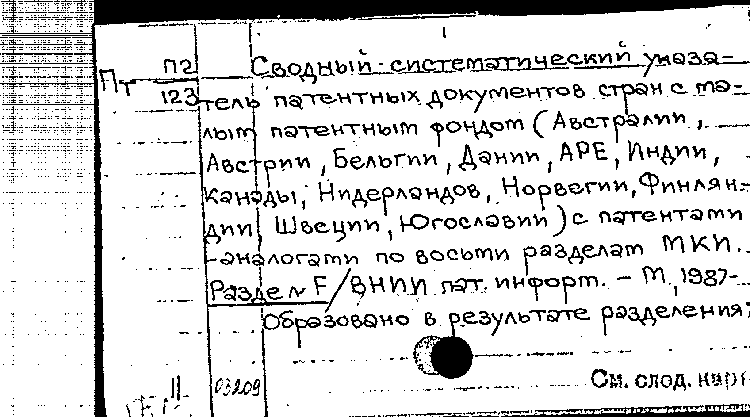 Пт П2
123
Сводный систематический указа-
тель патентных документов стран с ма-
лым патентным фондом (Австралии,
Австрии, Бельгии, Дании, АРЕ, Индии,
Канады, Нидерландов, Норвегии, Финлян-
дии, Швеции, Югославии) с патентами
-аналогами по восьми разделам МКИ.
Раздел F / ВНИИ пат. информ. - М., 1987-
Образовано в результате разделения;
См. след. карт
II 03209